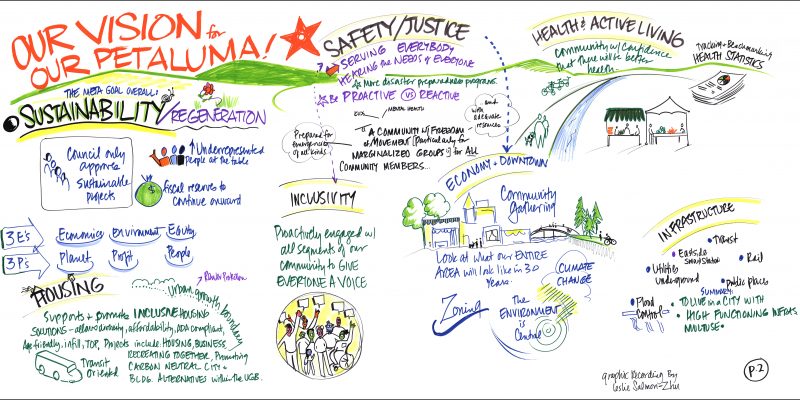 OUR VISION for
OUR PETALUMA!
THE META GOAL OVERALL:
SUSTAINABILITY/REGENERATION
Council only
approves
Sustainable
projects
↑ Underrepresented
people at the table
fiscal reserves to
continue onward
3 E's
Economics Environment Equity
3 P's
Planet Profit People
HOUSING
Urban growth boundary
Supports + promote INCLUSIVE HOUSING
SOLUTIONS - allows diversity, affordability, ADA compliant,
Age friendly, infill, TOD, Projects include HOUSING, BUSINESS,
RECREATING TOGETHER, Promoting
CARBON NEUTRAL CITY +
BLDG. ALTERNATIVES within the UGB.
Transit
Oriented
SAFETY/JUSTICE
SERVING EVERYBODY
HEARING the NEEDS of EVERYONE
More disaster preparedness programs
Be PROACTIVE VS REACTIVE
MENTAL HEALTH
Prepared for
emergencies
of all kinds
and
with
adequate
resources
"A COMMUNITY w/ FREEDOM
of MOVEMENT (Particularly for
MARGINALIZED GROUPS!) for ALL
COMMUNITY MEMBERS...
INCLUSIVITY
Proactively engaged w/
all segments of our
community to GIVE
EVERYONE A VOICE
HEALTH & ACTIVE LIVING
Community w/ Confidence
that there will be better
health
Tracking + Benchmarking
HEALTH STATISTICS
ECONOMY + DOWNTOWN
Community
gathering
Look at what our ENTIRE
AREA will look like in 30
years.
CLIMATE
CHANGE
Zoning
The
ENVIRONMENT
is
Central
INFRASTRUCTURE
Transit
Eastside
Rail
Utilities
underground
public places
Flood
Control
SUMMARY:
TO LIVE in a CITY WITH
HIGH FUNCTIONING INFRAS.
MULTIUSE
graphic Recording By
Leslie Salmon-Zhu
P.2